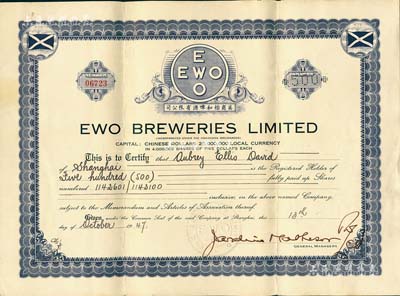 NUMBER
06723
E
EWO
O
SHARES
500
司公限有酒啤和怡商英
EWO BREWERIES LIMITED
(INCORPORATED UNDER THE COMPANIES ORDINANCES)
CAPITAL: CHINESE DOLLARS 20,000,000 LOCAL CURRENCY
IN 4,000,000 SHARES OF FIVE DOLLARS EACH
This is to Certify that Aubrey Ellis David
of Shanghai is the Registered Holder of
Five hundred (500) fully paid up Shares
numbered 1142601/1143100
inclusive, in the above named Company,
subject to the Memorandum and Articles of Association thereof.
Given under the Common Seal of the said Company at Shanghai, the 13th
day of October 1947.
Jardine Matheson
GENERAL MANAGERS